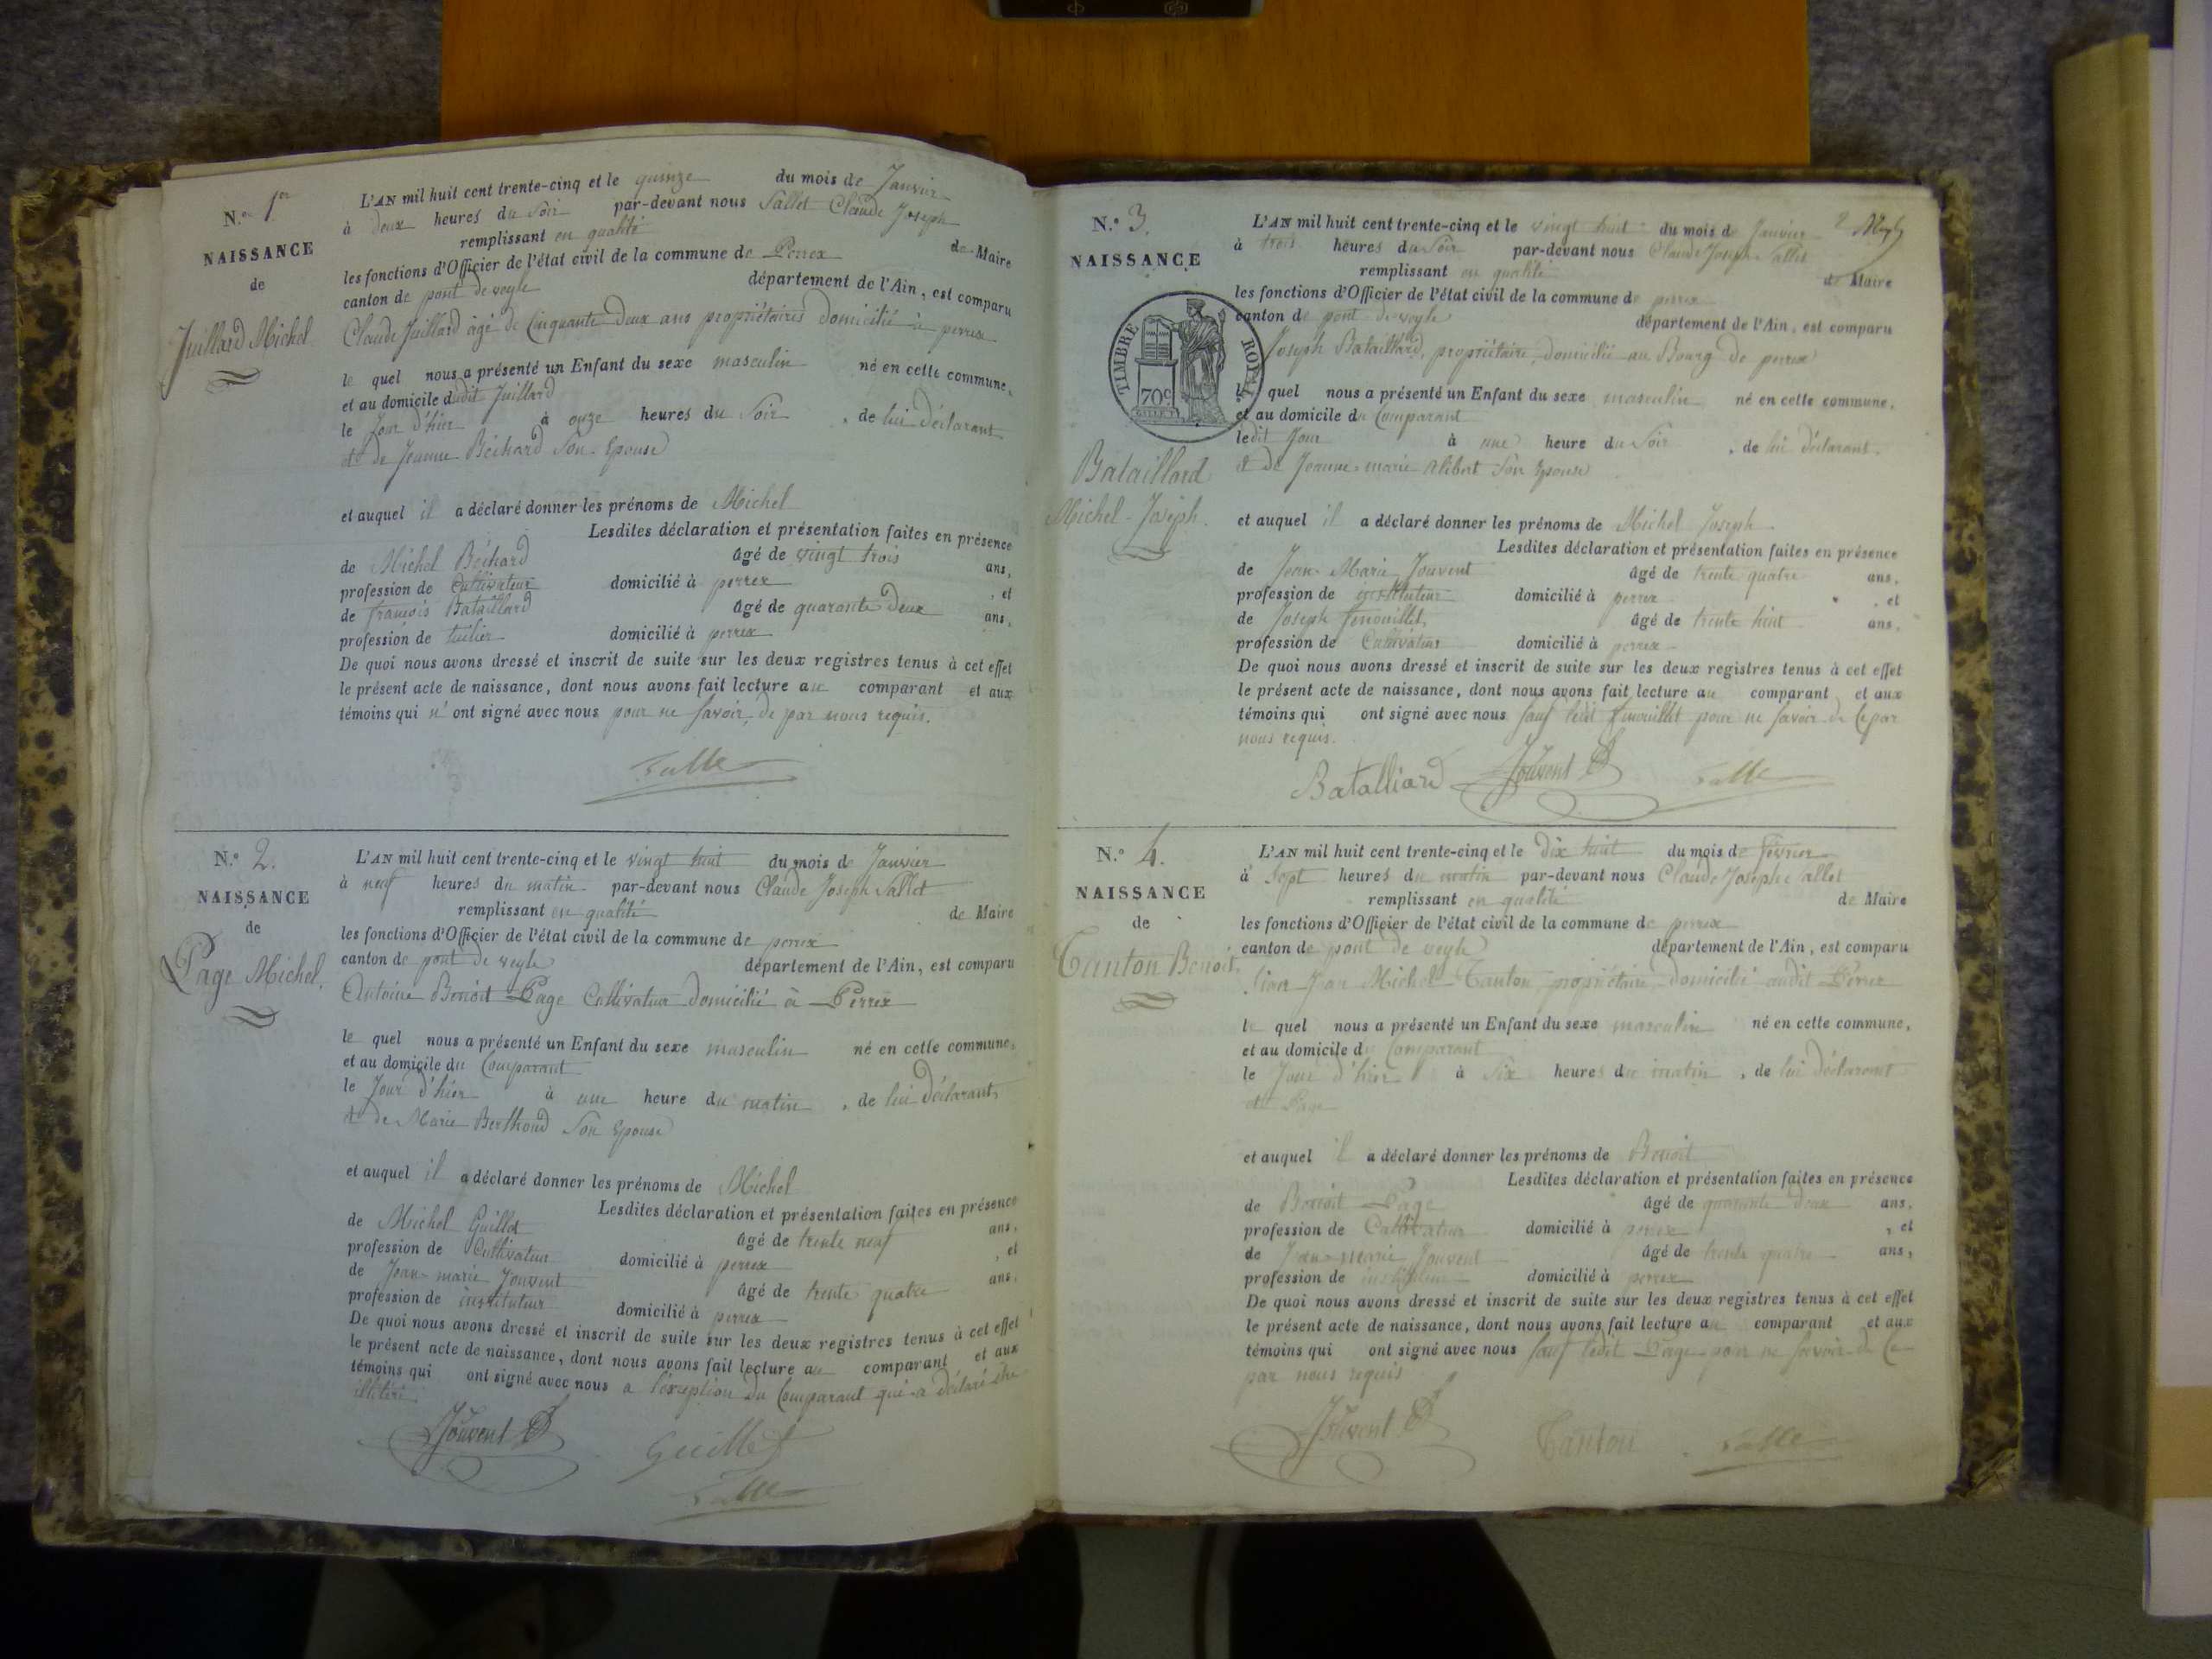 N.° 1er
NAISSANCE
de
Juillard Michel
L'AN mil huit cent trente-cinq et le quinze du mois de Janvier
à deux heures du Soir par-devant nous Sallet Claude Joseph
remplissant en qualité de Maire
les fonctions d'Officier de l'état civil de la commune de Perrex
canton de pont de veyle département de l'Ain, est comparu
Claude Juillard âgé de Cinquante Deux ans propriétaires Domicilié à perrex
le quel nous a présenté un Enfant du sexe masculin né en cette commune,
et au domicile dudit Juillard
le Jour d'hier à onze heures du Soir, de lui Déclarant
& de Jeanne Béchard Son Epouse
et auquel il a déclaré donner les prénoms de Michel
Lesdites déclaration et présentation faites en présence
de Michel Béchard âgé de vingt trois ans,
profession de Cultivateur domicilié à perrex, et
de françois Bataillard âgé de quarante Deux ans,
profession de tuilier domicilié à perrex
De quoi nous avons dressé et inscrit de suite sur les deux registres tenus à cet effet
le présent acte de naissance, dont nous avons fait lecture au comparant et aux
témoins qui n'ont signé avec nous pour ne savoir, de par nous requis.
N.° 2.
NAISSANCE
de
Page Michel.
L'AN mil huit cent trente-cinq et le vingt huit du mois de Janvier
à neuf heures du matin par-devant nous Claude Joseph Sallet
remplissant en qualité de Maire
les fonctions d'Officier de l'état civil de la commune de perrex
canton de pont de veyle département de l'Ain, est comparu
Antoine Benoit Page Cultivateur Domicilié à Perrex
le quel nous a présenté un Enfant du sexe masculin né en cette commune,
et au domicile du Comparant
le Jour d'hier à une heure du matin, de lui Déclarant
& de Marie Berthoud Son Epouse
et auquel il a déclaré donner les prénoms de Michel
Lesdites déclaration et présentation faites en présence
de Michel Guillot âgé de trente neuf ans,
profession de Cultivateur domicilié à perrex, et
de Jean-marie Jouvent âgé de trente quatre ans,
profession de instituteur domicilié à perrex
De quoi nous avons dressé et inscrit de suite sur les deux registres tenus à cet effet
le présent acte de naissance, dont nous avons fait lecture au comparant et aux
témoins qui ont signé avec nous a l'exception du Comparant qui a déclaré être
illitéré
Jouvent Guillot
N.° 3.
NAISSANCE
TIMBRE ROYAL
70c
Bataillard
Michel-Joseph.
L'AN mil huit cent trente-cinq et le vingt huit du mois de Janvier
à trois heures du Soir par-devant nous Claude Joseph Sallet
remplissant en qualité de Maire
les fonctions d'Officier de l'état civil de la commune de perrex
canton de pont de veyle département de l'Ain, est comparu
Joseph Bataillard, propriétaire, domicilié au Bourg de perrex
le quel nous a présenté un Enfant du sexe masculin né en cette commune,
et au domicile du Comparant
ledit Jour à une heure du Soir, de lui Déclarant.
& de Jeanne-marie Alibert Son Epouse
et auquel il a déclaré donner les prénoms de Michel Joseph
Lesdites déclaration et présentation faites en présence
de Jean-Marie Jouvent âgé de trente quatre ans,
profession de instituteur domicilié à perrex, et
de Joseph fenouillet, âgé de trente huit ans,
profession de Cultivateur domicilié à perrex
De quoi nous avons dressé et inscrit de suite sur les deux registres tenus à cet effet
le présent acte de naissance, dont nous avons fait lecture au comparant et aux
témoins qui ont signé avec nous sauf ledit fenouillet pour ne savoir de ce par
nous requis.
Batalliard Jouvent
N.° 4.
NAISSANCE
de
Tanton Benoit.
L'AN mil huit cent trente-cinq et le Dix huit du mois de février
à Sept heures du matin par-devant nous Claude Joseph Sallet
remplissant en qualité de Maire
les fonctions d'Officier de l'état civil de la commune de perrex
canton de pont de veyle département de l'Ain, est comparu
Jean Michel Tanton propriétaire Domicilié audit Perrex
le quel nous a présenté un Enfant du sexe masculin né en cette commune,
et au domicile du Comparant
le Jour d'hier à Six heures du matin, de lui Déclarant
& Page
et auquel il a déclaré donner les prénoms de Benoit
Lesdites déclaration et présentation faites en présence
de Benoit Page âgé de quarante Deux ans,
profession de Cultivateur domicilié à perrex, et
de Jean-marie Jouvent âgé de trente quatre ans,
profession de instituteur domicilié à perrex
De quoi nous avons dressé et inscrit de suite sur les deux registres tenus à cet effet
le présent acte de naissance, dont nous avons fait lecture au comparant et aux
témoins qui ont signé avec nous sauf ledit Page pour ne savoir de Ce
par nous requis
Jouvent Tanton